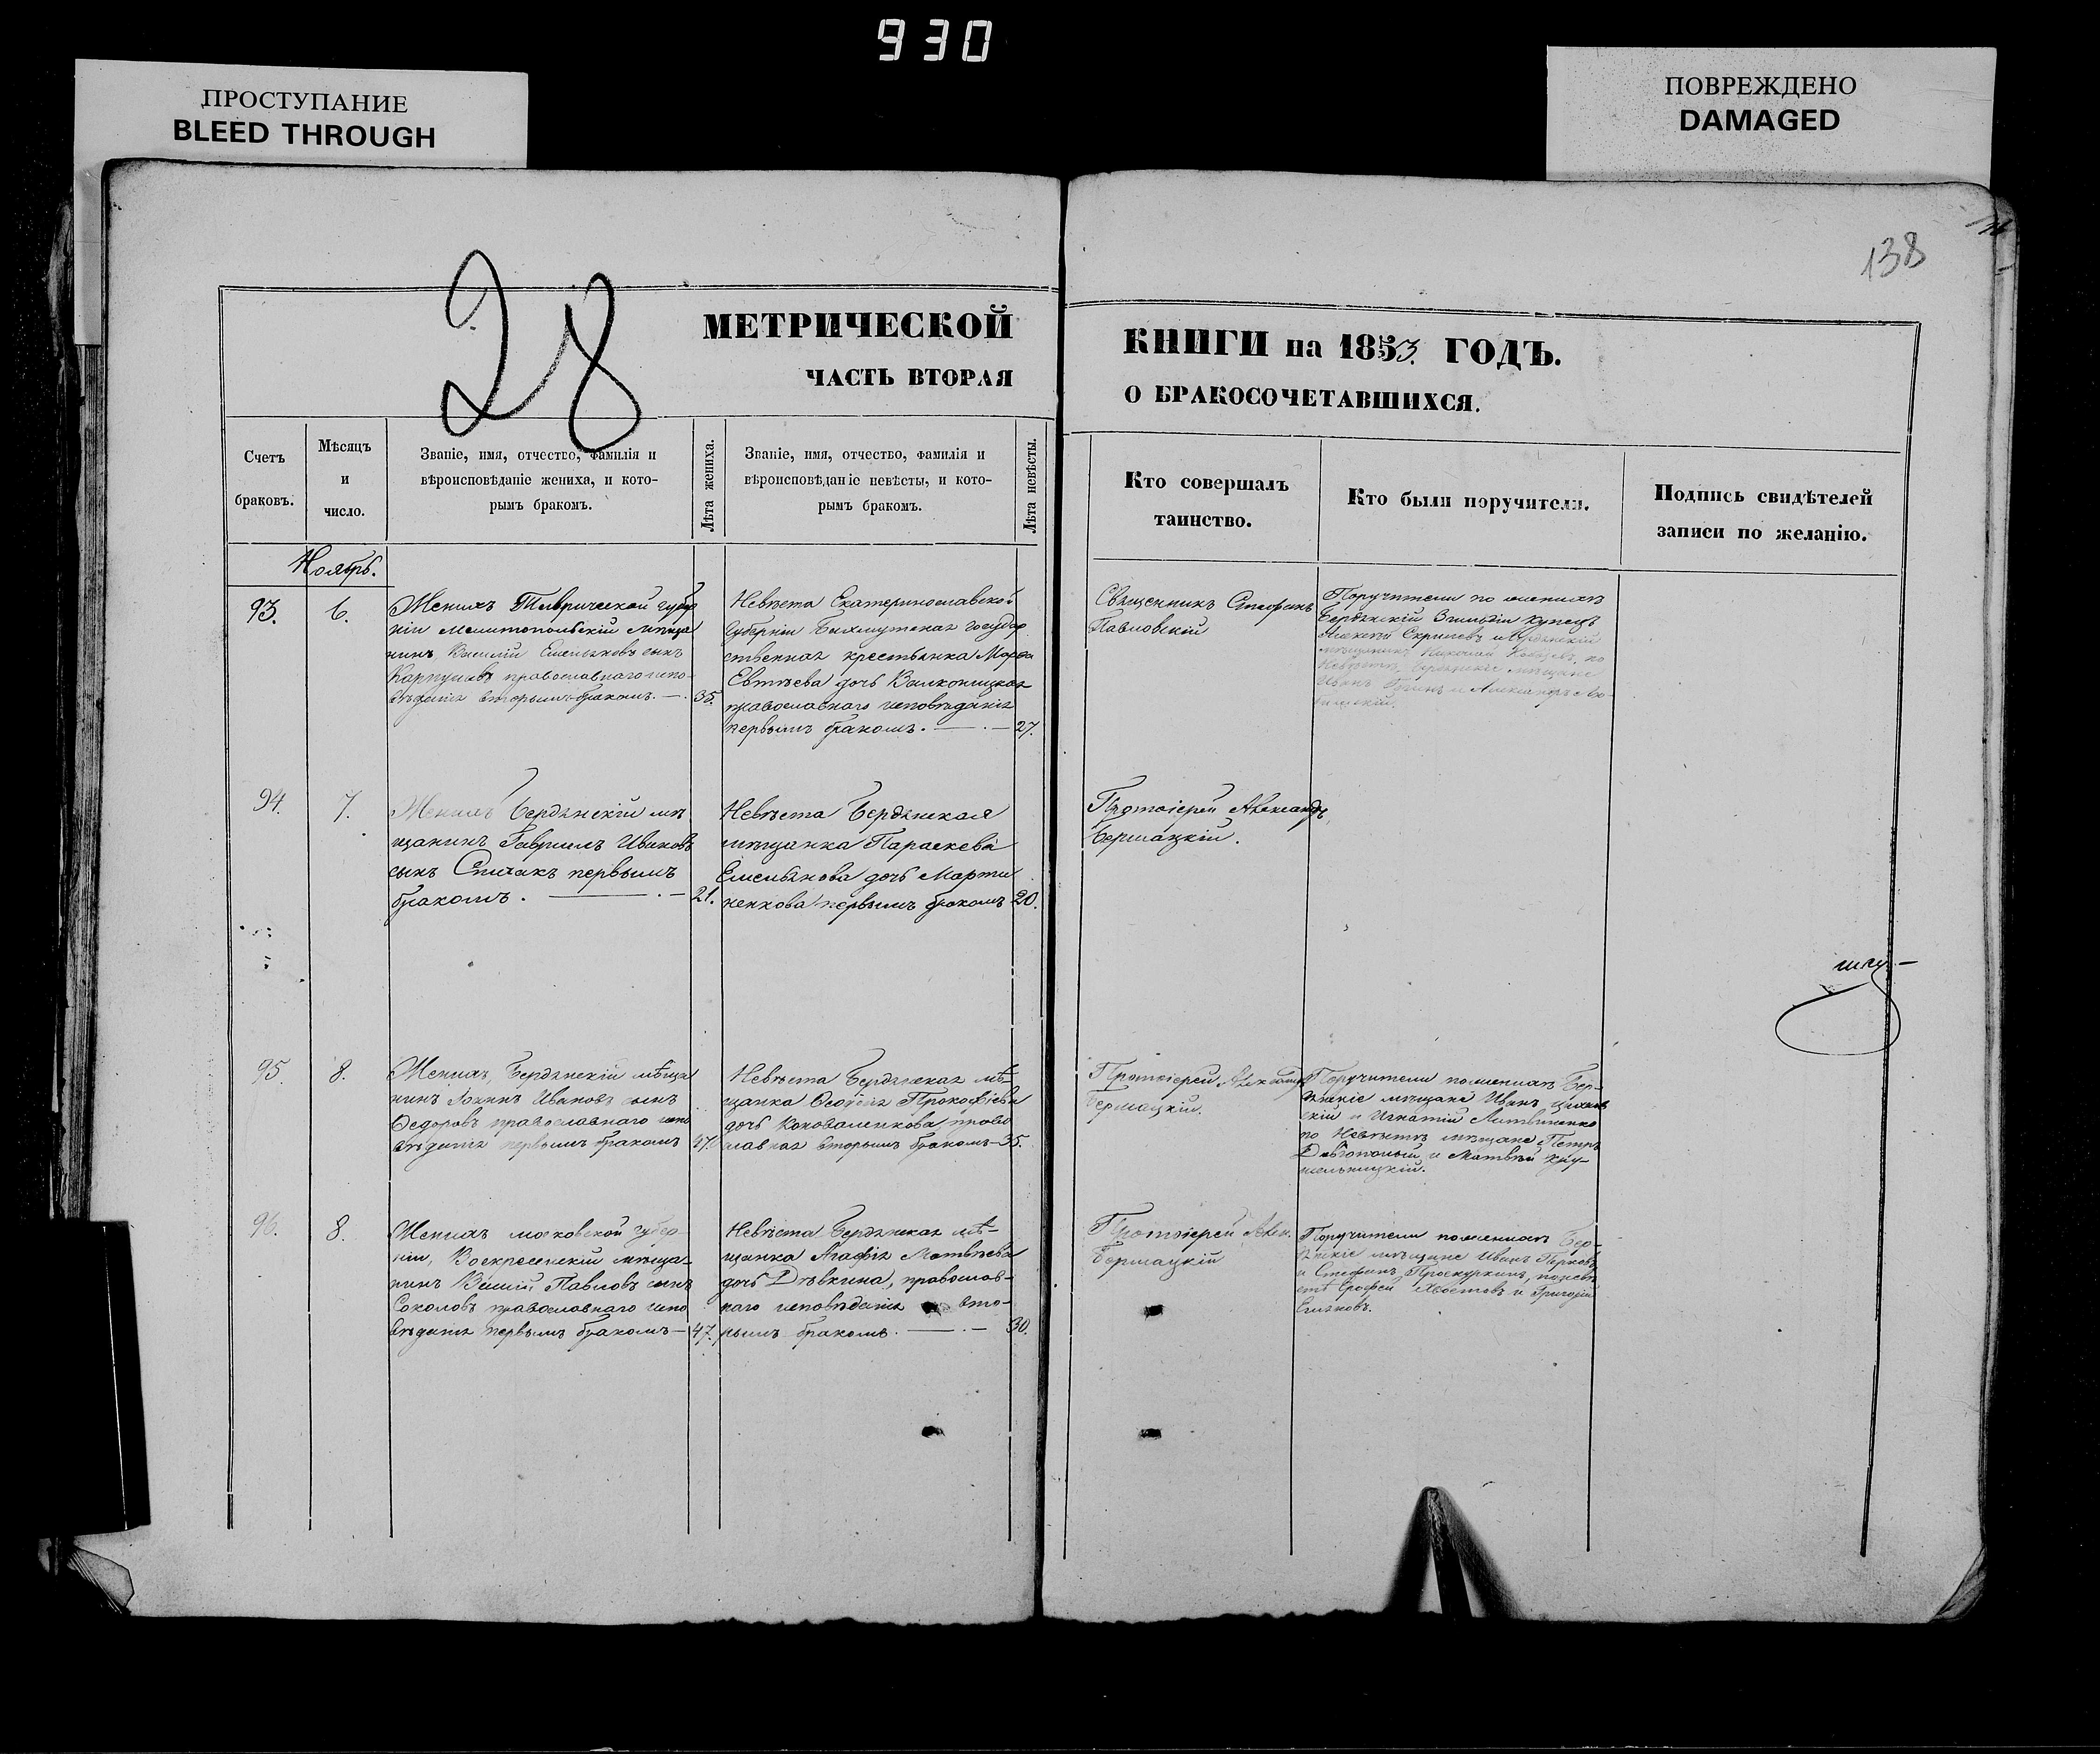 930
ПРОСТУПАНИЕ
BLEED THROUGH
ПОВРЕЖДЕНО
DAMAGED
138
28
МЕТРИЧЕСКОЙ
ЧАСТЬ ВТОРАЯ
КНИГИ на 1853. ГОДЪ.
О БРАКОСОЧЕТАВШИХСЯ.
Счетъ
браковъ.
Мѣсяцъ
и
число.
Званіе, имя, отчество, фамилія и
вѣроисповѣданіе жениха, и кото-
рымъ бракомъ.
Лѣта жениха.
Званіе, имя, отчество, фамилія и
вѣроисповѣданіе невѣсты, и кото-
рымъ бракомъ.
Лѣта невѣсты.
Кто совершалъ
таинство.
Кто были поручители.
Подпись свидѣтелей
записи по желанію.
Ноябрь.
93.
6.
Женихъ Таврической губер
ніи Мелитопольскій мѣща
нинъ, Василій Емельяновъ сынъ
православнаго испо-
вѣданія вторымъ бракомъ.
35.
Невѣста Екатеринославской
Губерніи Бахмутская государ
ственная крестьянка Марѳа
Евтѣева дочь
православнаго исповѣданія
первымъ бракомъ.
27.
Священникъ Стефанъ
Павловскій
Поручители по женихѣ
Бердянскій купецъ
Алексѣй и Бердянскій
мѣщанинъ Николай по
Невѣстѣ, Бердянскіе мѣщане
Иванъ и Александръ
94.
7.
Женихъ Бердянскій мѣ
щанинъ Гавріилъ Ивановъ
сынъ Спичакъ первымъ
бракомъ.
21.
Невѣста Бердянская
мѣщанка Параскева
Емельянова дочь Марти
ненкова первымъ бракомъ
20.
Протоіерей Александръ
Бершацкій.
шку-
95.
8.
Женихъ, Бердянскій мѣща
нинъ Іоаннъ Ивановъ сынъ
Ѳедоровъ православнаго испо
вѣданія первымъ бракомъ
27.
Невѣста Бердянская мѣ-
щанка Прокофіева
дочь Коноваленкова, право
славная вторымъ бракомъ
35.
Протоіерей Александръ
Бершацкій.
Поручители по женихѣ Бер-
дянскіе мѣщане Иванъ
скій и Игнатій Литвиненко
по Невѣстѣ мѣщане Петръ
и Матвѣй
96.
8.
Женихъ Московской губер
ніи, Воскресенскій мѣща-
нинъ Павловъ сынъ
Соколовъ православнаго испо
вѣданія первымъ бракомъ
47.
Невѣста Бердянская мѣ-
щанка Агафія Матвѣева
дочь Дѣвкина, православ-
наго исповѣданія вто-
рымъ бракомъ.
30.
Протоіерей Алек.
Бершацкій
Поручители по женихѣ Бер-
дянскіе мѣщане Иванъ
и Стефанъ Проскуркинъ, по невѣ
стѣ Ерофей Хвостовъ и Григорій